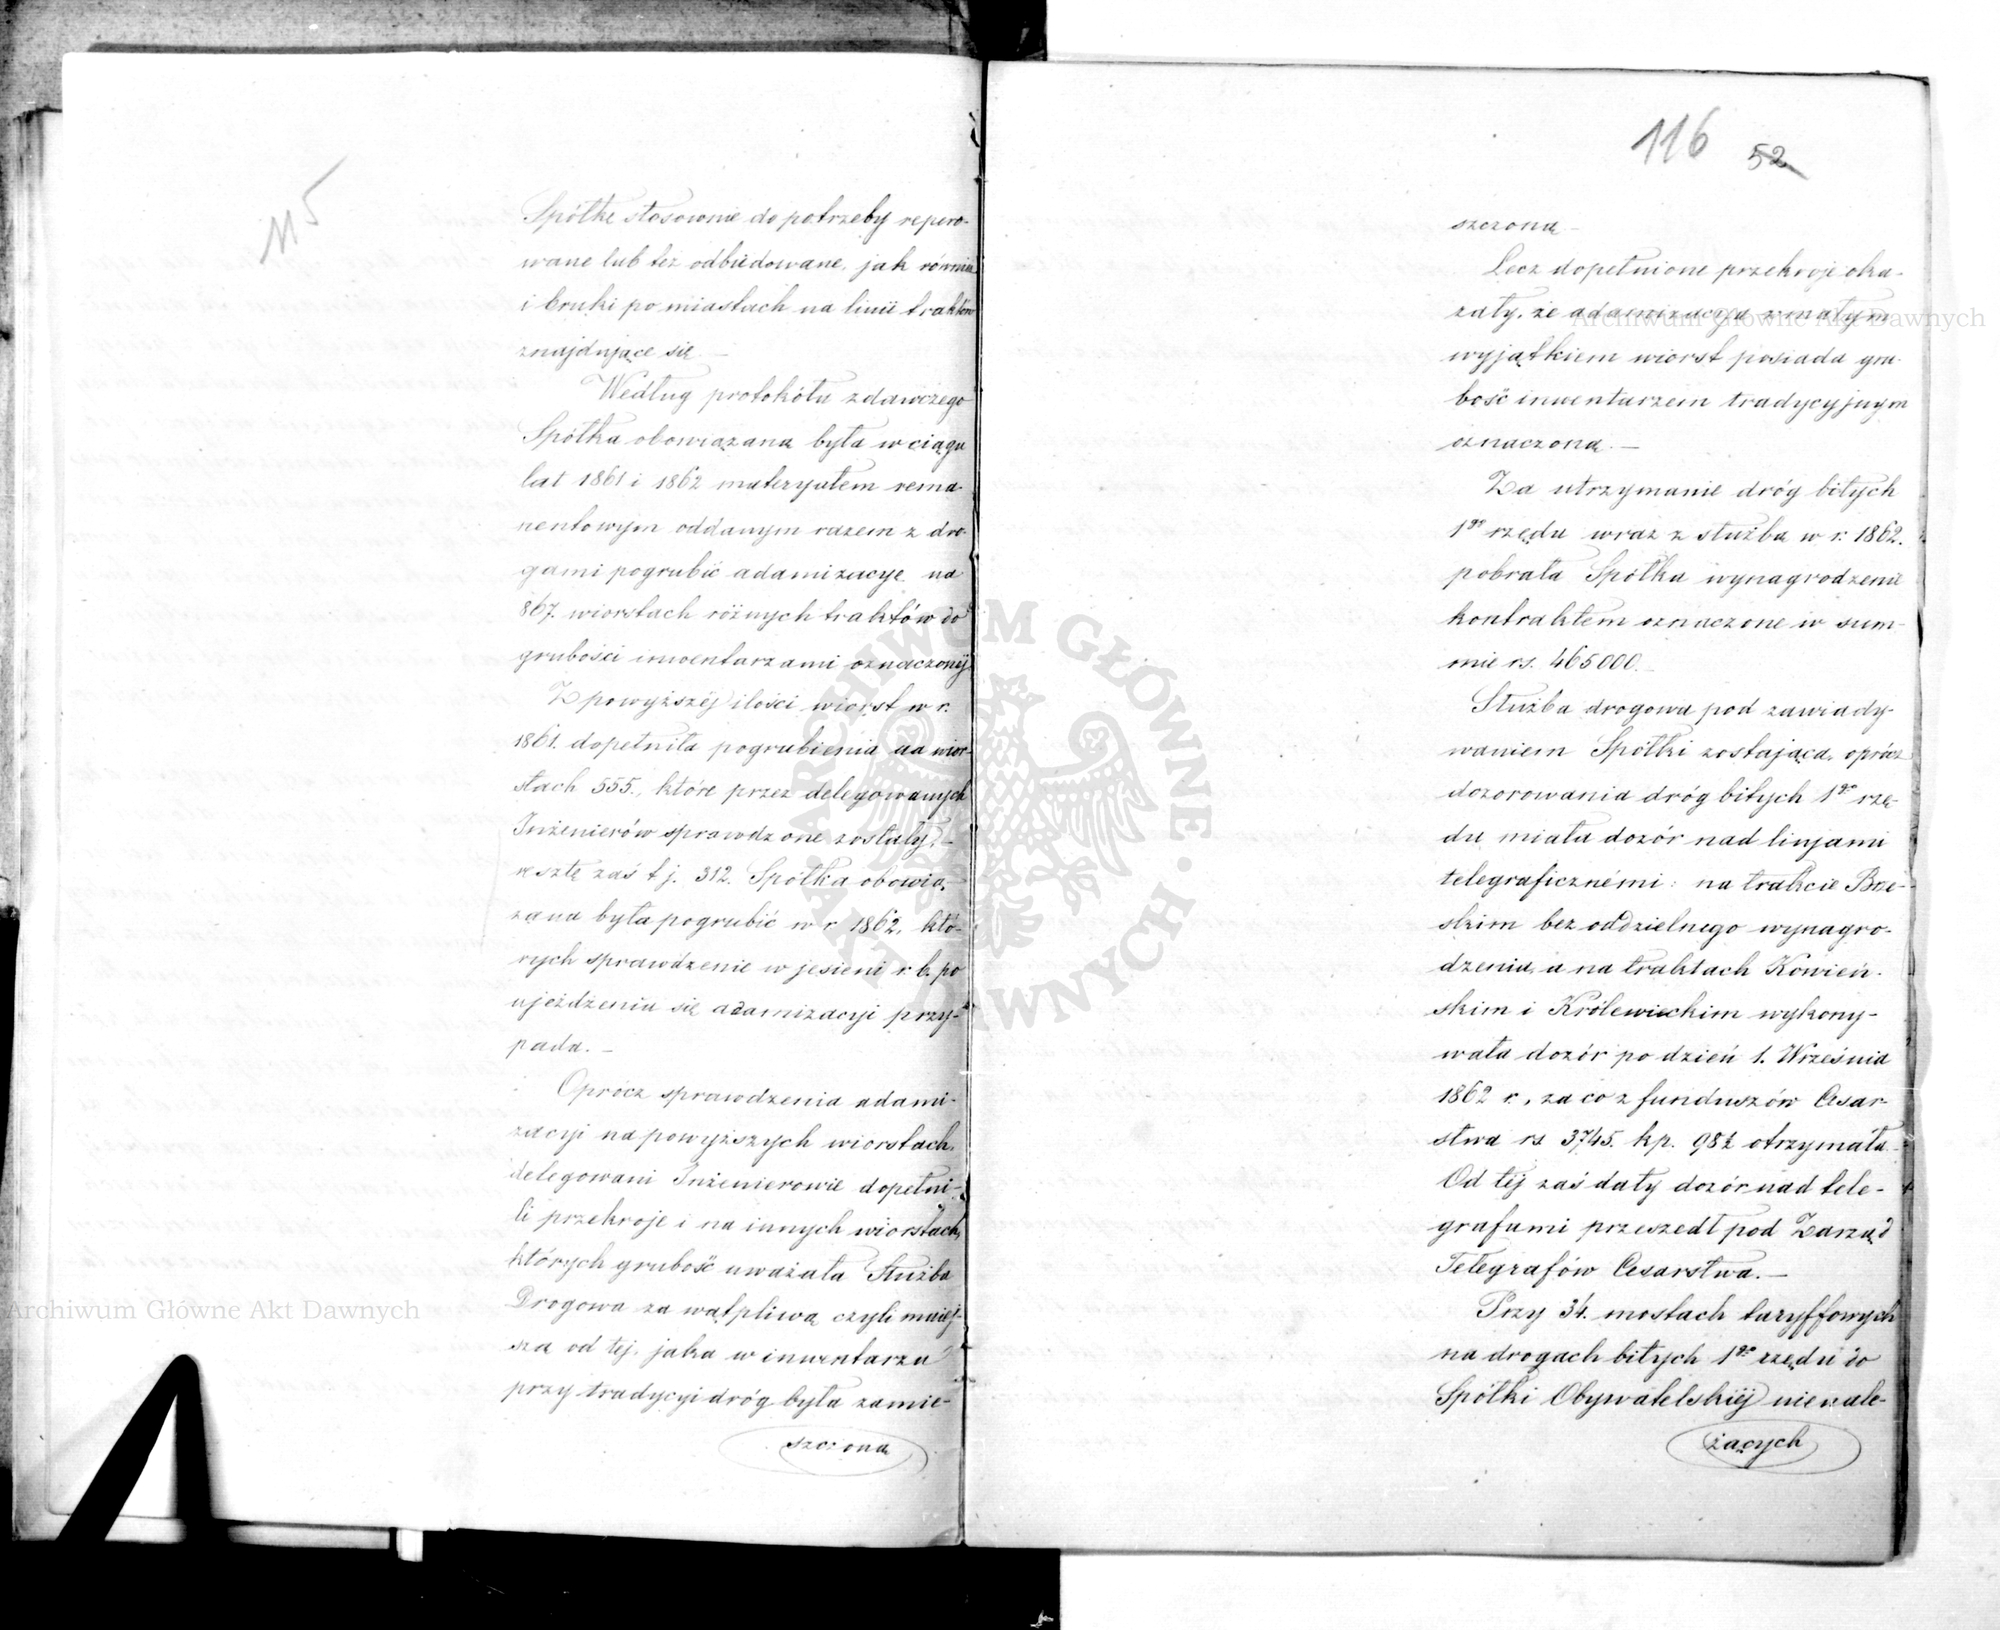 115
Spółkę stosownie do potrzeby repero-
wane lub też odbudowane, jak równie
i bruki po miastach na linii traktów
znajdujące się. —
Według protokółu zdawczego
Spółka obowiązana była w ciągu
lat 1861 i 1862 materyałem rema-
nentowym oddanym razem z dro-
gami pogrubić adamizacyę na
867. wiorstach różnych traktów do
grubości inwentarzami oznaczonéj.
Z powyższéj ilości wiorst w r.
1861. dopełniła pogrubienia na wior-
stach 555., które przez delegowanych
Inżenierów sprawdzone zostały, —
resztę zaś t. j. 312. Spółka obowią-
zana była pogrubić w r. 1862, któ-
rych sprawdzenie w jesieni r. b. po
ujeżdżeniu się adamizacyi przy-
pada. —
Oprócz sprawdzenia adami-
zacyi na powyższych wiorstach,
delegowani Inżenierowie dopełni-
li przekroje i na innych wiorstach,
których grubość uważała Służba
Drogowa za wątpliwą czyli mniéj-
szą od téj, jaka w inwentarzu
przy tradycyi dróg była zamie-
szczona
116 52
szczoną —
Lecz dopełnione przekroje oka-
zały, że adamizacya z małym
wyjątkiem wiorst posiada gru-
bość inwentarzem tradycyjnym
oznaczoną. —
Za utrzymanie dróg bitych
1go rzędu wraz z służbą w r. 1862.
pobrała Spółka wynagrodzenie
kontraktem oznaczone w sum-
mie rs. 465000. —
Służba drogowa pod zawiady-
waniem Spółki zostająca, oprócz
dozorowania dróg bitych 1go rzę-
du miała dozór nad linjami
telegraficznémi: na trakcie Brze-
skim bez oddzielnego wynagro-
dzenia, a na traktach Kowień-
skim i Królewieckim wykony-
wała dozór po dzień 1. Września
1862 r., za co z funduszów Cesar-
stwa rs. 3745. kp. 98½ otrzymała.
Od téj zaś daty dozór nad tele-
grafami przeszedł pod Zarząd
Telegrafów Cesarstwa. —
Przy 34. mostach taryffowych
na drogach bitych 1go rzędu do
Spółki Obywatelskiéj nienale-
żących
Archiwum Główne Akt Dawnych
Archiwum Główne Akt Dawnych
ARCHIWUM GŁÓWNE AKT DAWNYCH